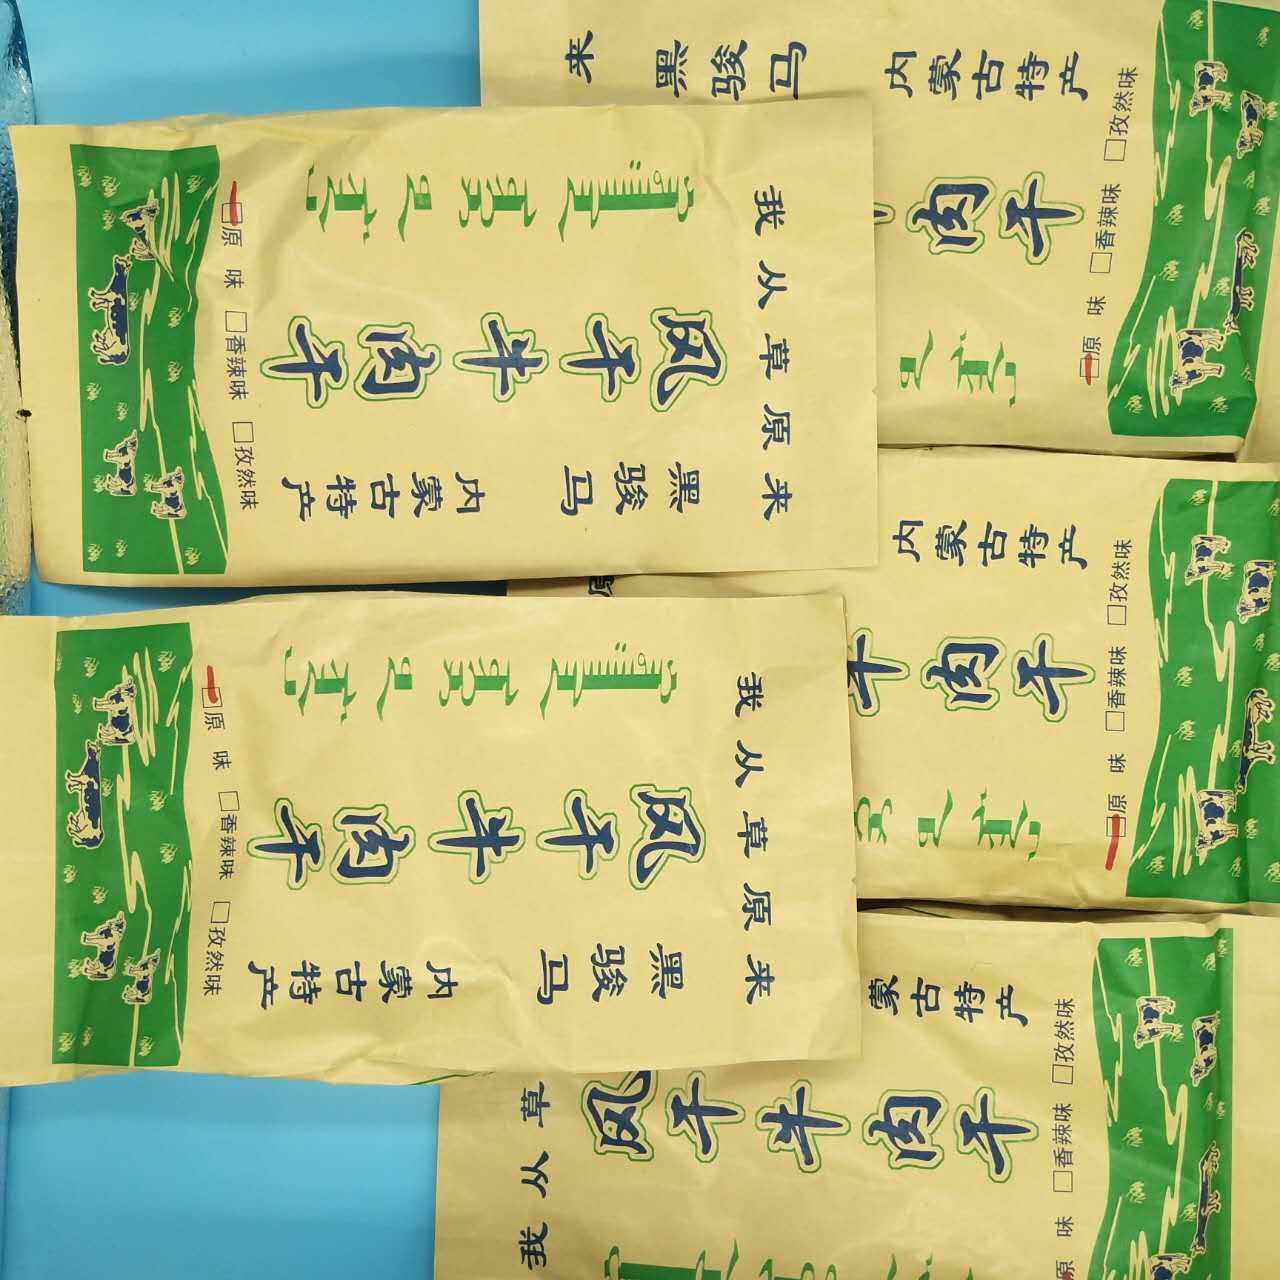 我从草原来
黑骏马 内蒙古特产
风干牛肉干
□原 味 □香辣味 □孜然味
我从草原来
黑骏马 内蒙古特产
风干牛肉干
□原 味 □香辣味 □孜然味
来
黑骏马 内蒙古特产
肉干
□原 味 □香辣味 □孜然味
内蒙古特产
牛肉干
□原 味 □香辣味 □孜然味
我从草
蒙古特产
风干牛肉干
原 味 □香辣味 □孜然味